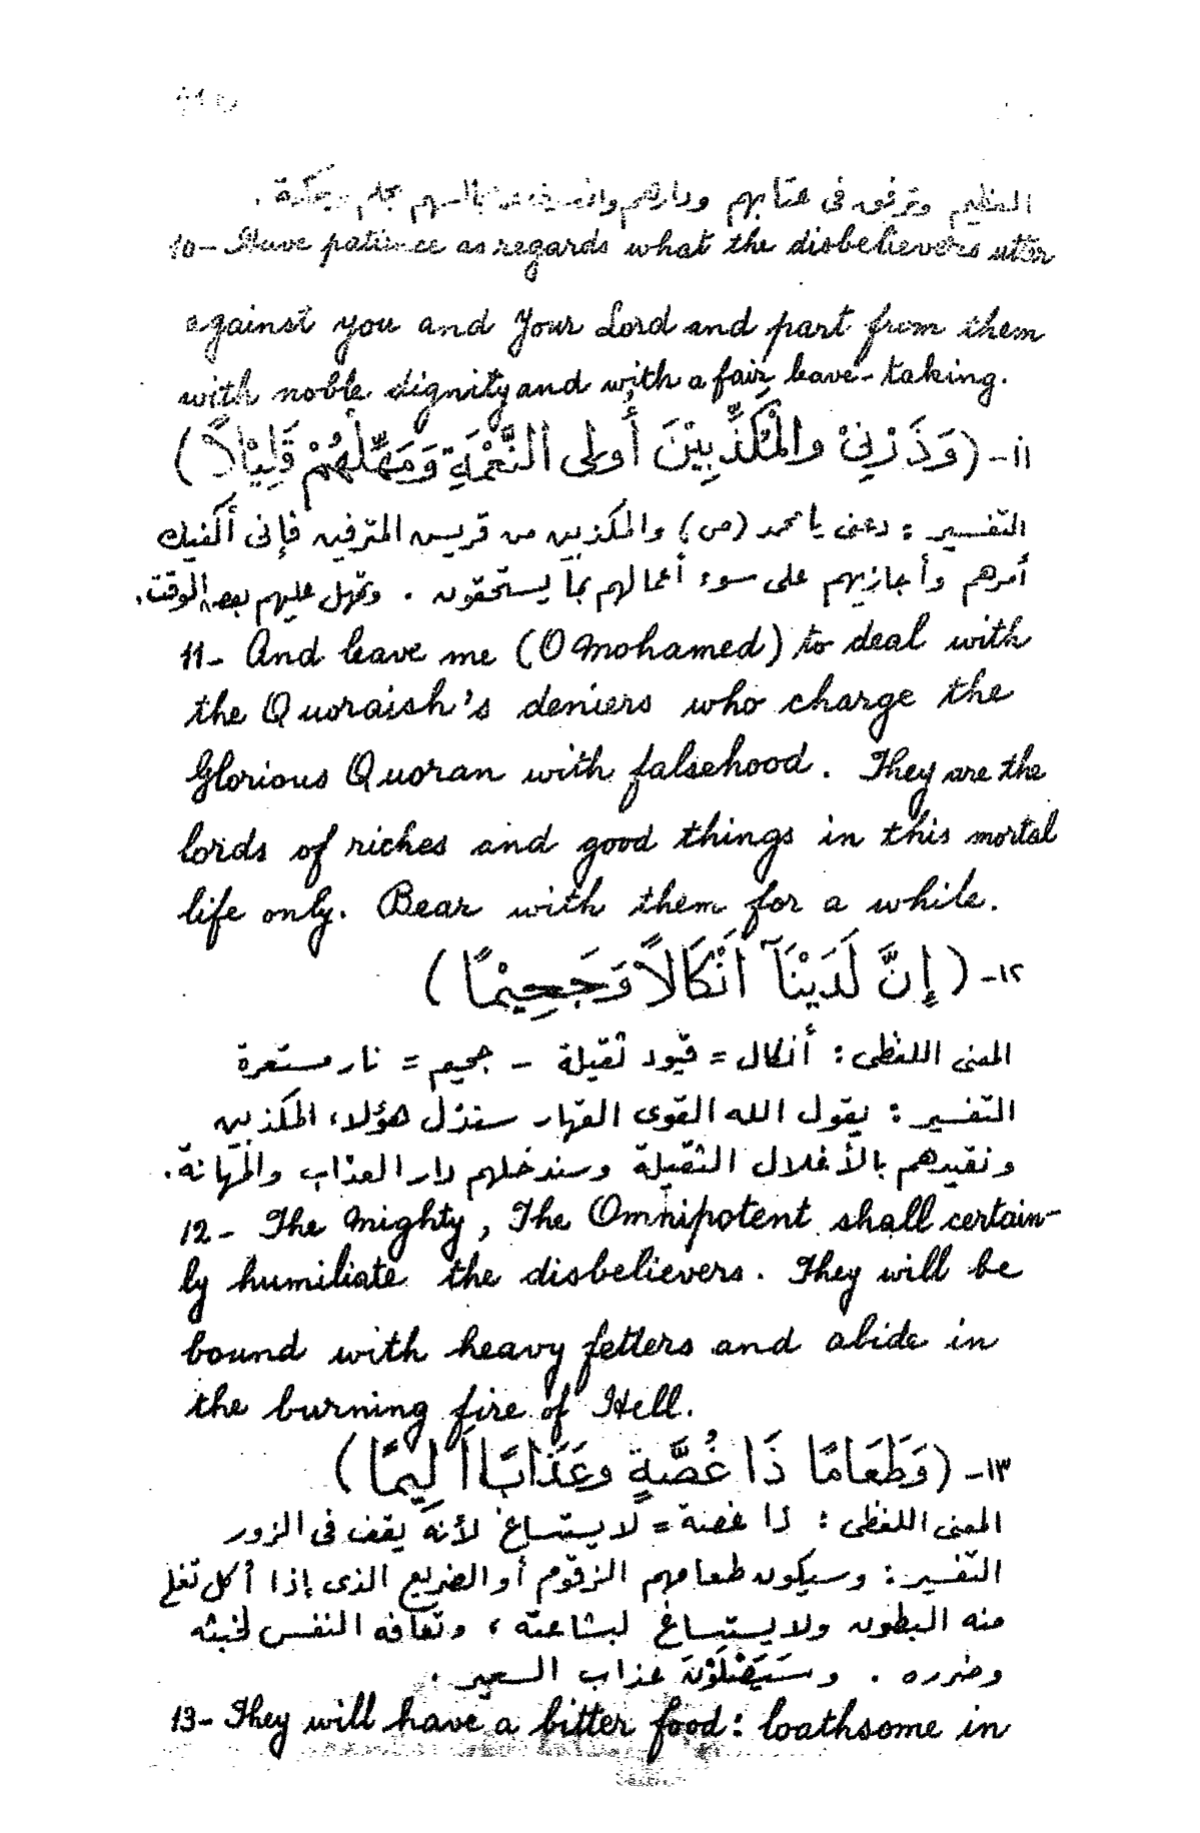 العظيم وترفق فى عتابهم ودارهم بحلم وحكمة .
10- Have patience as regards what the disbelievers utter
against you and Your Lord and part from them
with noble dignity and with a fair leave-taking.
١١- (وَذَرْنِىْ والْمُكَذِّبِيْنَ أُولى النَّعْمَةِ وَمَهِّلْهُمْ قَلِيْلاً)
التفسير : دعنى يا محمد (ص) والمكذبين من قريش المترفين فإنى أكفيك
أمرهم وأجازيهم على سوء أعمالهم بما يستحقون . وتمهل عليهم بعض الوقت .
11- And leave me (O Mohamed) to deal with
the Quoraish's deniers who charge the
Glorious Quoran with falsehood. They are the
lords of riches and good things in this mortal
life only. Bear with them for a while.
١٢- (إِنَّ لَدَيْنَآ أَنْكَالاً وَجَحِيْمًا)
المعنى اللفظى : أنكال = قيود ثقيلة - جحيم = نار مستعرة
التفسير : يقول الله القوى القهار سنذل هؤلاء المكذبين
ونقيدهم بالأغلال الثقيلة وسندخلهم دار العذاب والمهانة .
12- The Mighty, The Omnipotent shall certain-
ly humiliate the disbelievers. They will be
bound with heavy fetters and abide in
the burning fire of Hell.
١٣- (وَطَعَامًا ذَا غُصَّةٍ وعَذَابًا أَلِيمًا)
المعنى اللفظى : ذا غصة = لا يستساغ لأنه يقف فى الزور
التفسير : وسيكون طعامهم الزقوم أو الضريع الذى إذا أكل تغلى
منه البطون ولا يستساغ لبشاعته ، وتعافه النفس لخبثه
وضرره . وسَيَصْلَوْنَ عذاب السعير .
13- They will have a bitter food: loathsome in